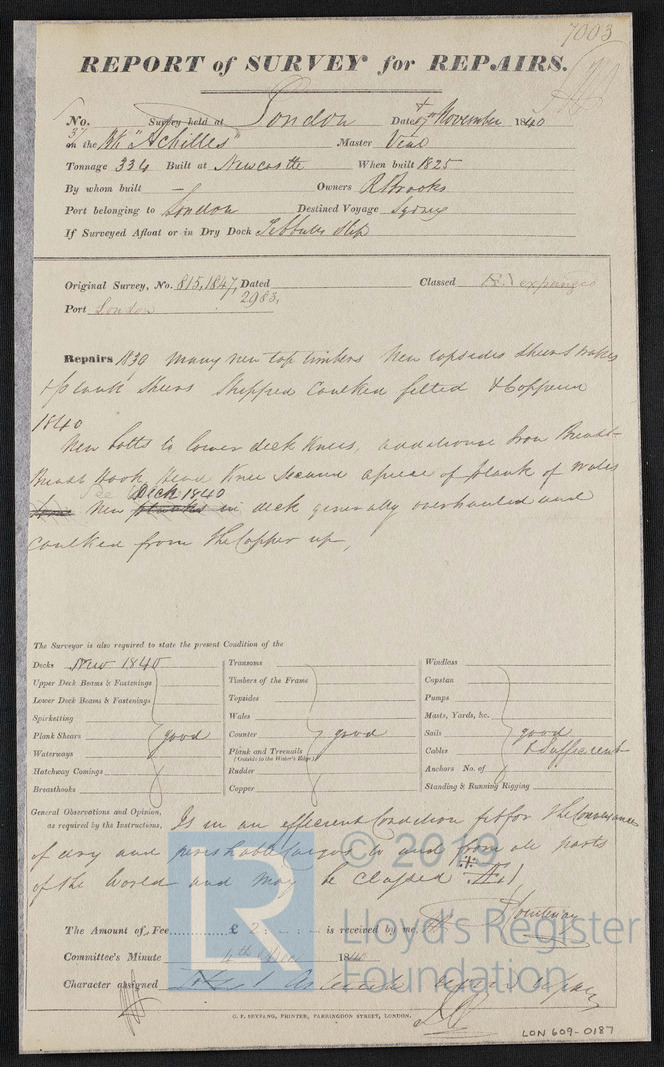 7003
REPORT of SURVEY for REPAIRS.
No. 37 Survey held at London Date 7 November 1840
on the Bk "Achilles" Master Veal
Tonnage 334 Built at Newcastle When built 1825
By whom built — Owners R Brooks
Port belonging to London Destined Voyage Sydney
If Surveyed Afloat or in Dry Dock Tebbutts Slip
Original Survey, No. 815, 1847, 2983, Dated Classed Æ 1 expunged
Port London
Repairs 1830 Many new top timbers New topsides sheerstrakes
& plank sheers Stripped Caulked felted & Coppered
1840
New bolts to lower deck Knees, additional Iron Breast
Breast Hook Head Knee Secured apiece of plank of Wales
New Deck 1840 planks in deck generally overhauled and
caulked from the Copper up,
The Surveyor is also required to state the present Condition of the
Decks New 1840
Upper Deck Beams & Fastenings
Lower Deck Beams & Fastenings
Spirketting
Plank Shears good
Waterways
Hatchway Comings
Breasthooks
Transoms
Timbers of the Frame
Topsides
Wales
Counter good
Plank and Treenails
(Outside to the Water's Edge)
Rudder
Copper
Windlass
Capstan
Pumps
Masts, Yards, &c.
Sails good
Cables & Sufficient
Anchors No. of
Standing & Running Rigging
General Observations and Opinion, Is in an efficient Condition fit for the Conveyance
as required by the Instructions,
of dry and perishable cargos to and from all parts
of the World and may be Classed Æ 1
The Amount of Fee £ 2 : is received by me,
Committee's Minute 4th Dec 1840
Character assigned
© 2019
Lloyd's Register
Foundation
G. F. SEYFANG, PRINTER, FARRINGDON STREET, LONDON.
LON 609-0187